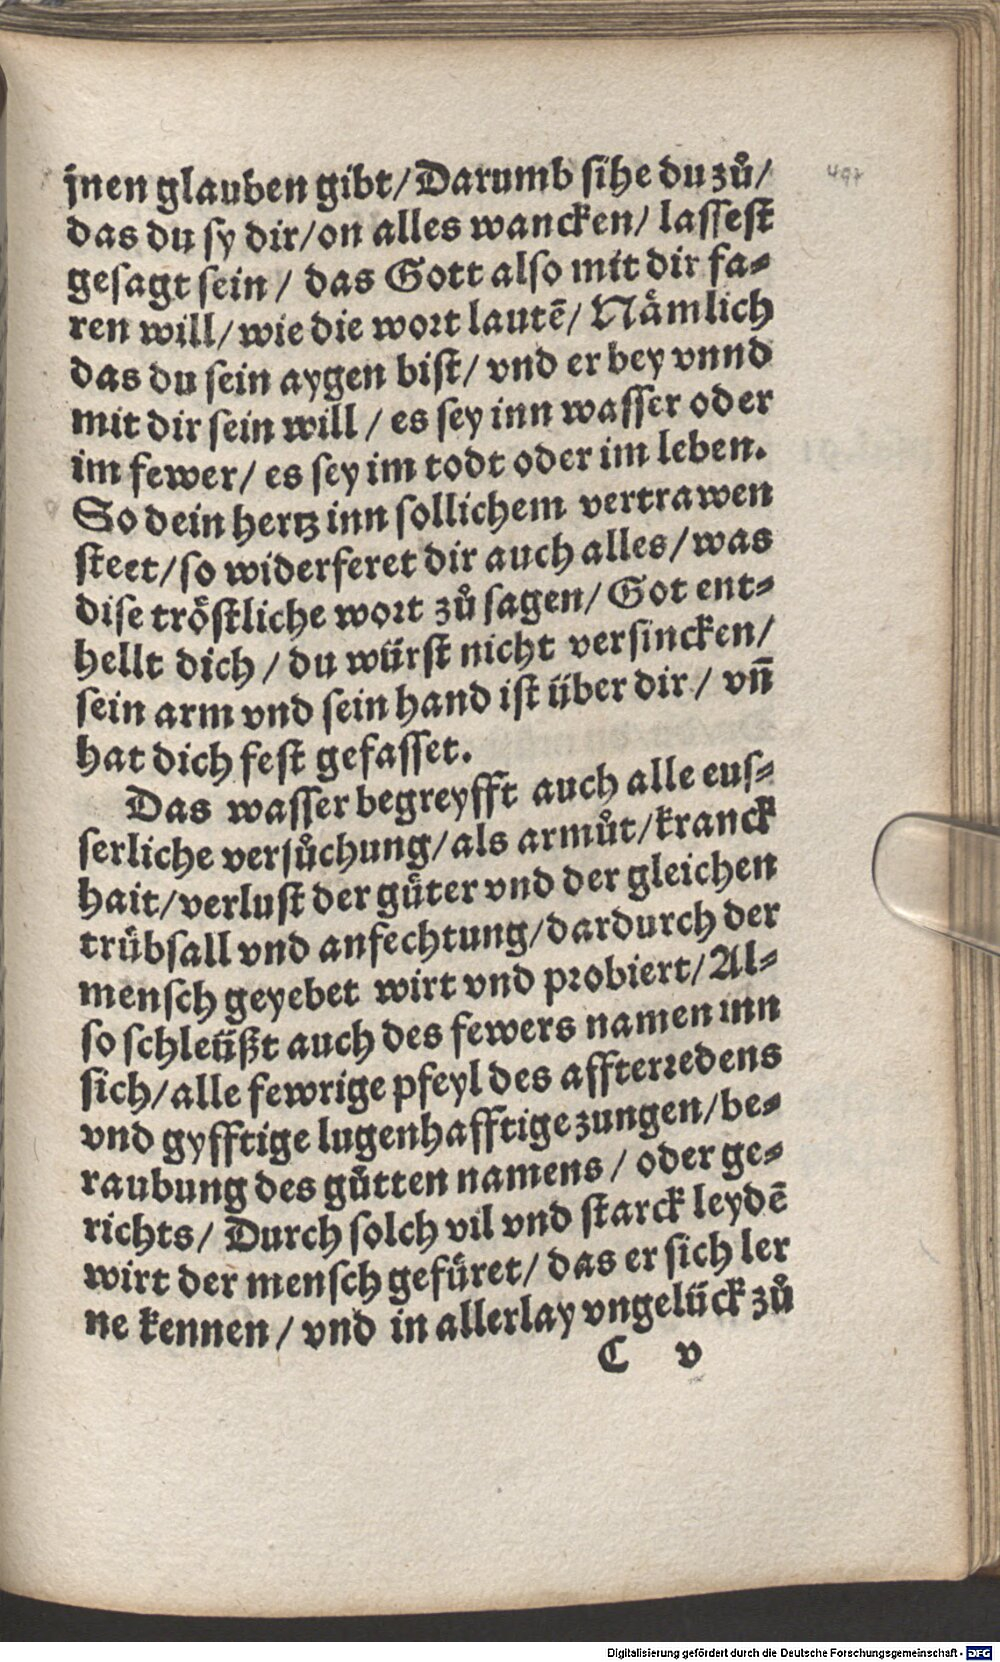 jnen glauben gibt/ Darumb sihe du zů/
das du sy dir/ on alles wancken/ lassest
gesagt sein/ das Gott also mit dir fa⸗
ren will/ wie die wort lautē/ Nämlich
das du sein aygen bist/ vnd er bey vnnd
mit dir sein will/ es sey inn wasser oder
im fewer/ es sey im todt oder im leben.
So dein hertz inn sollichem vertrawen
steet/ so widerferet dir auch alles/ was
dise tröstliche wort zů sagen/ Got ent⸗
hellt dich/ du würst nicht versincken/
sein arm vnd sein hand ist über dir/ vn̄
hat dich fest gefasset.
Das wasser begreyfft auch alle eus⸗
serliche versůchung/ als armůt/ kranck
hait/ verlust der gůter vnd der gleichen
trübsall vnd anfechtung/ dardurch der
mensch geyebet wirt vnd probiert/ Al⸗
so schleüßt auch des fewers namen inn
sich/ alle fewrige pfeyl des affterredens
vnd gyfftige lugenhafftige zungen/ be⸗
raubung des gůtten namens/ oder ge⸗
richts/ Durch solch vil vnd starck leydē
wirt der mensch gefüret/ das er sich ler
ne kennen/ vnd in allerlay vngelück zů
C v
497
Digitalisierung gefördert durch die Deutsche Forschungsgemeinschaft - DFG